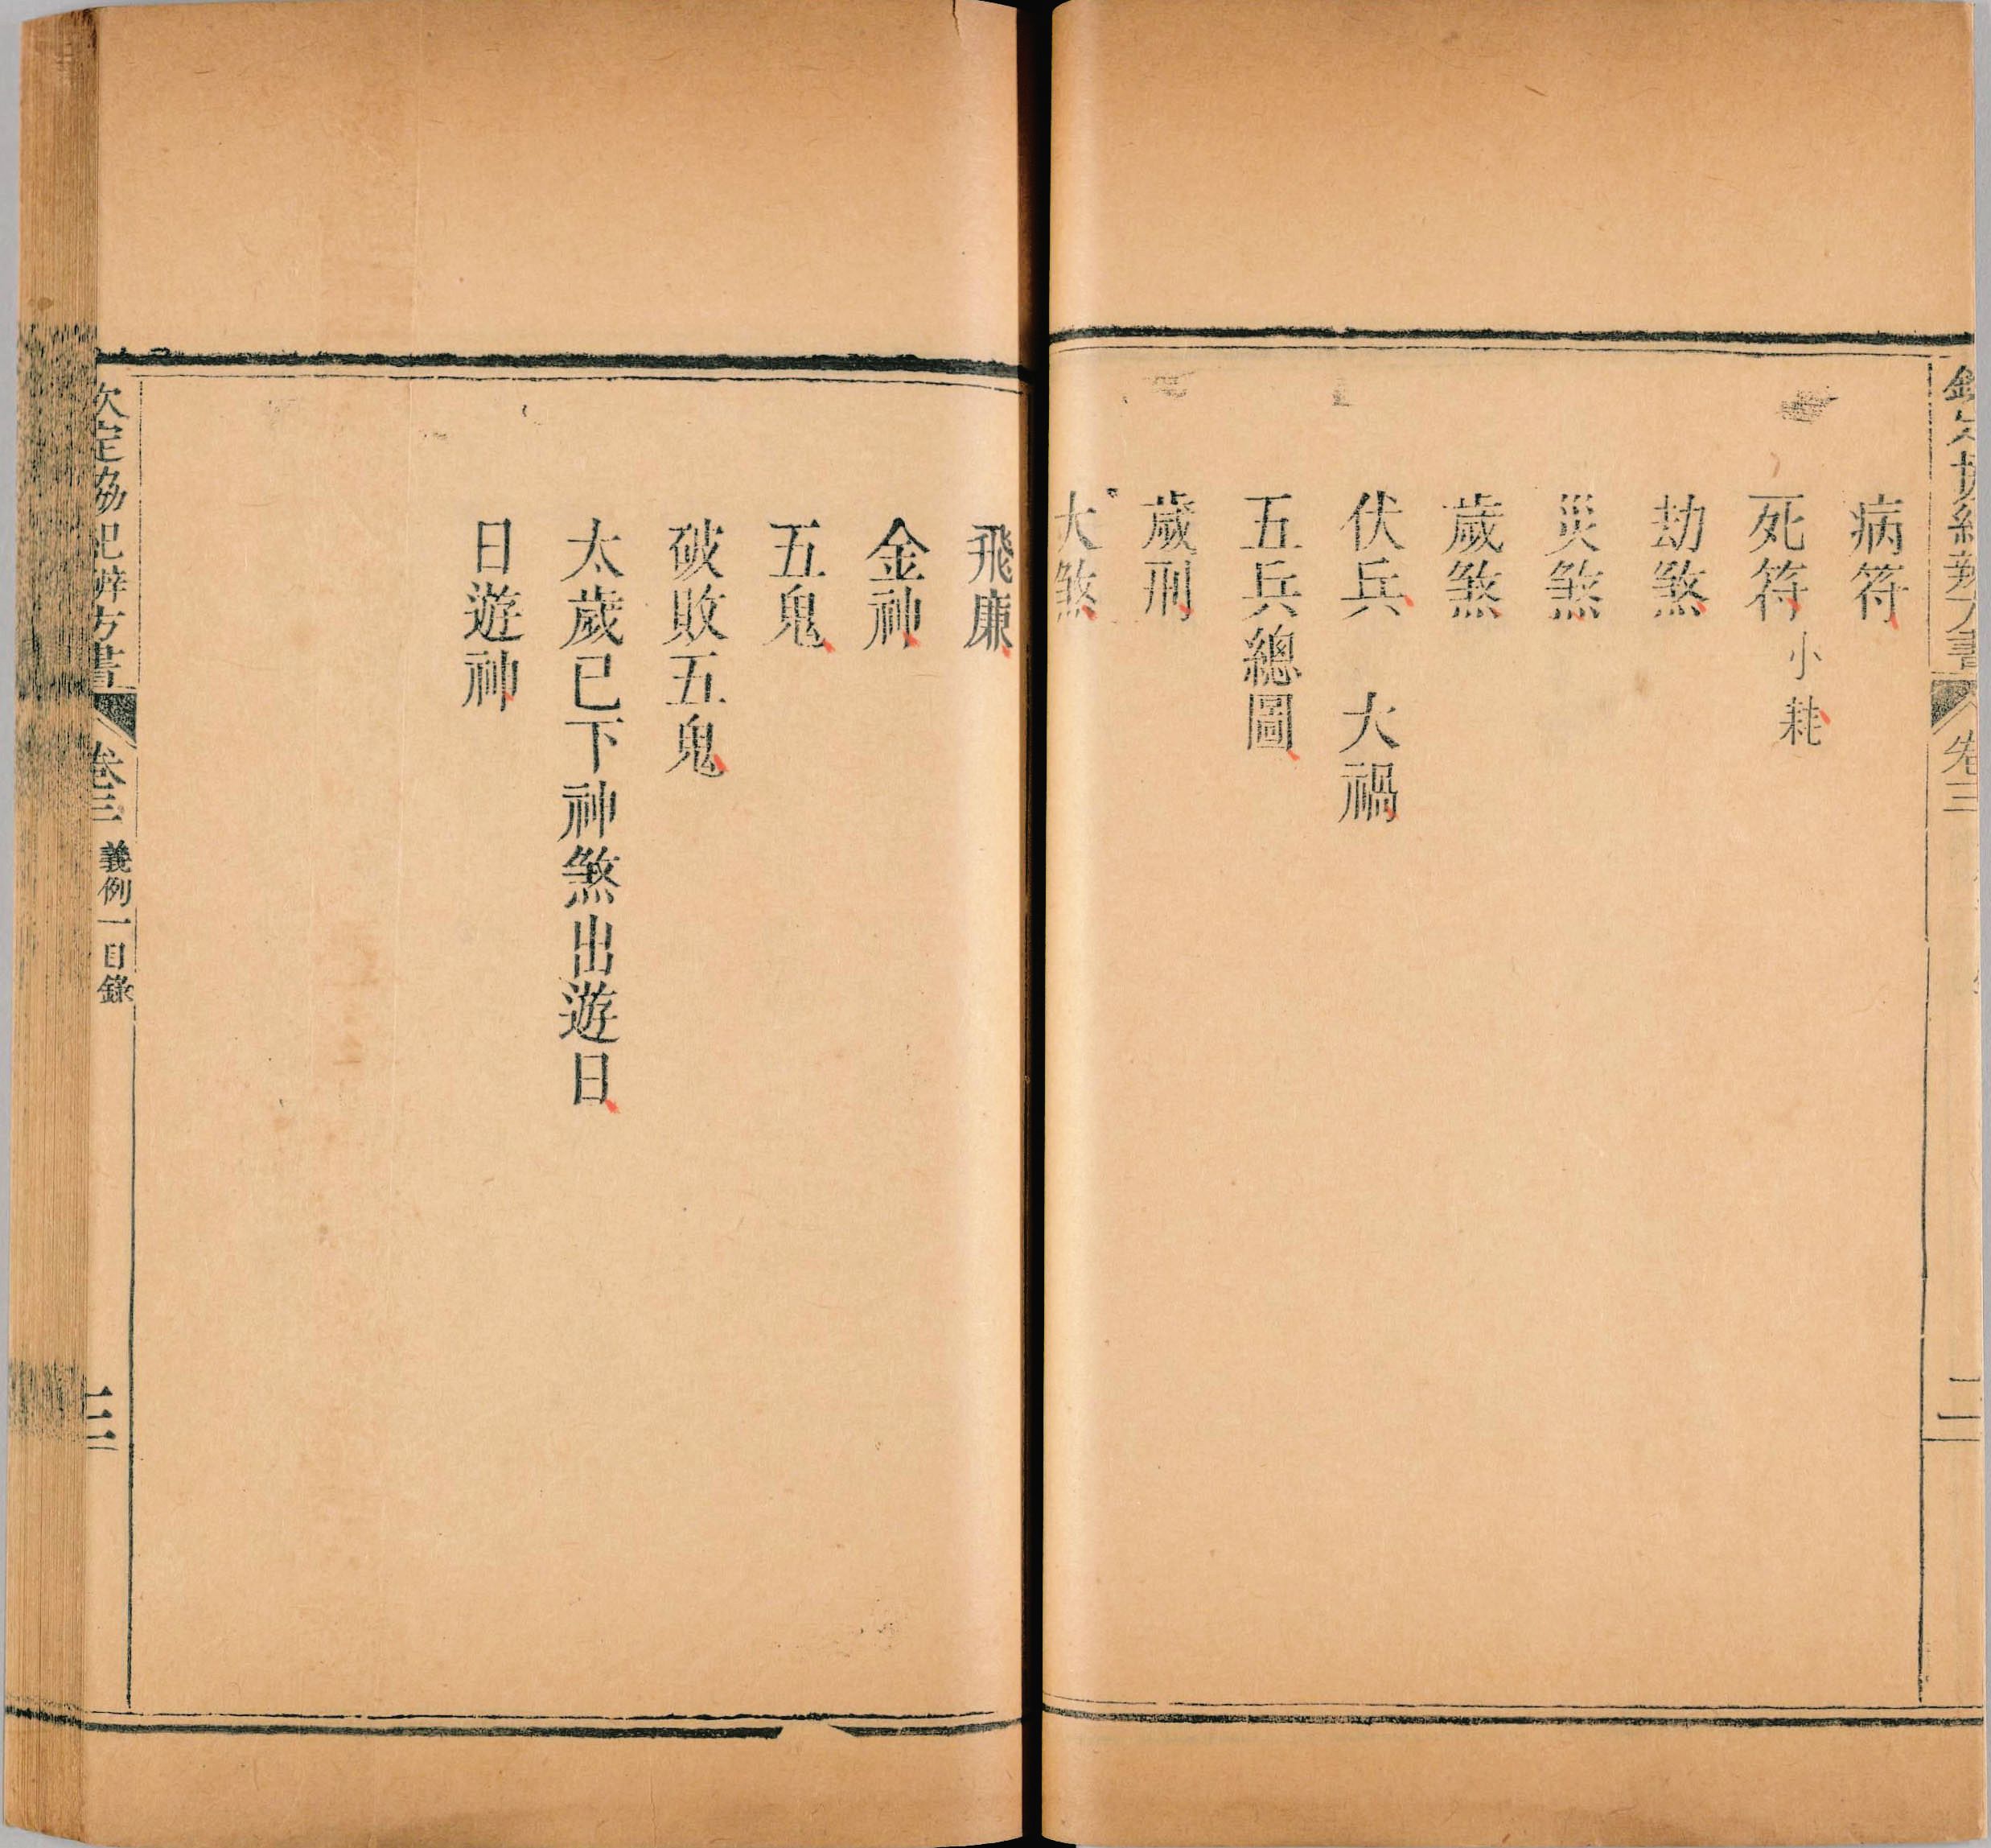 病符
死符 小耗
劫煞
災煞
歲煞
伏兵 大禍
五兵總圖
歲刑
大煞
飛廉
金神
五鬼
破敗五鬼
太歲已下神煞出遊日
日遊神
欽定協紀辨方書 卷三 義例一目錄 三